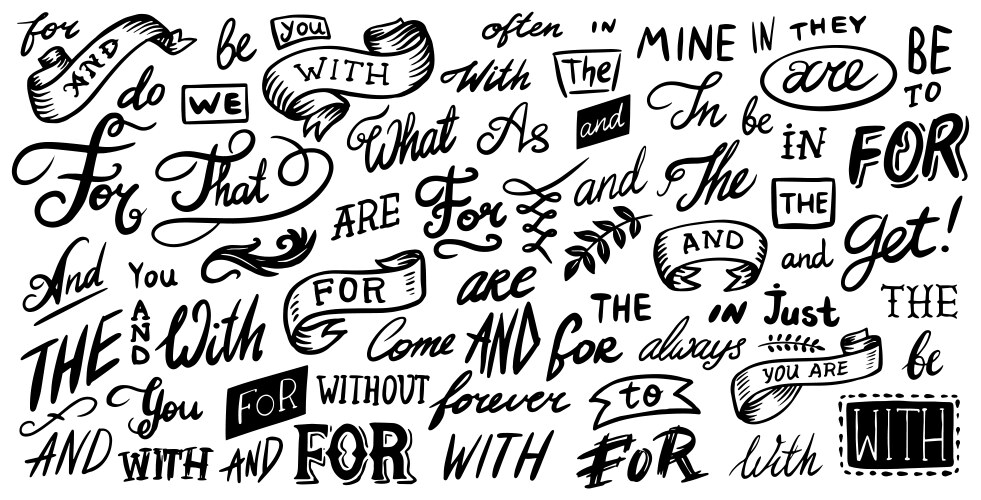 for
AND
be
you
WITH
often
IN
MINE
IN
THEY
BE
TO
do
WE
With
The
are
What
As
and
In
be
iN
FOR
For
That
ARE
For
and
The
THE
get!
And
You
FOR
are
AND
and
THE
AND
With
Come
AND
for
THE
always
IN
Just
THE
YOU ARE
be
You
FoR
WITHOUT
forever
to
WITH
AND
WITH
AND
FOR
WITH
FoR
With